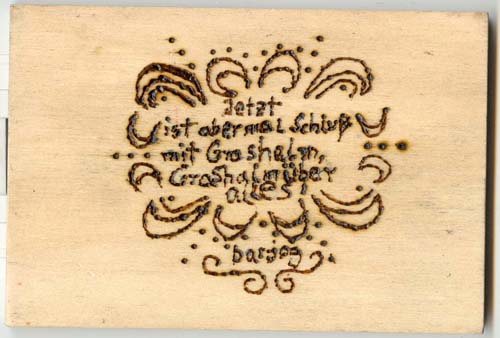 Jetzt
ist aber mal Schluß
mit Grashalm,
Grashalm über
alles!